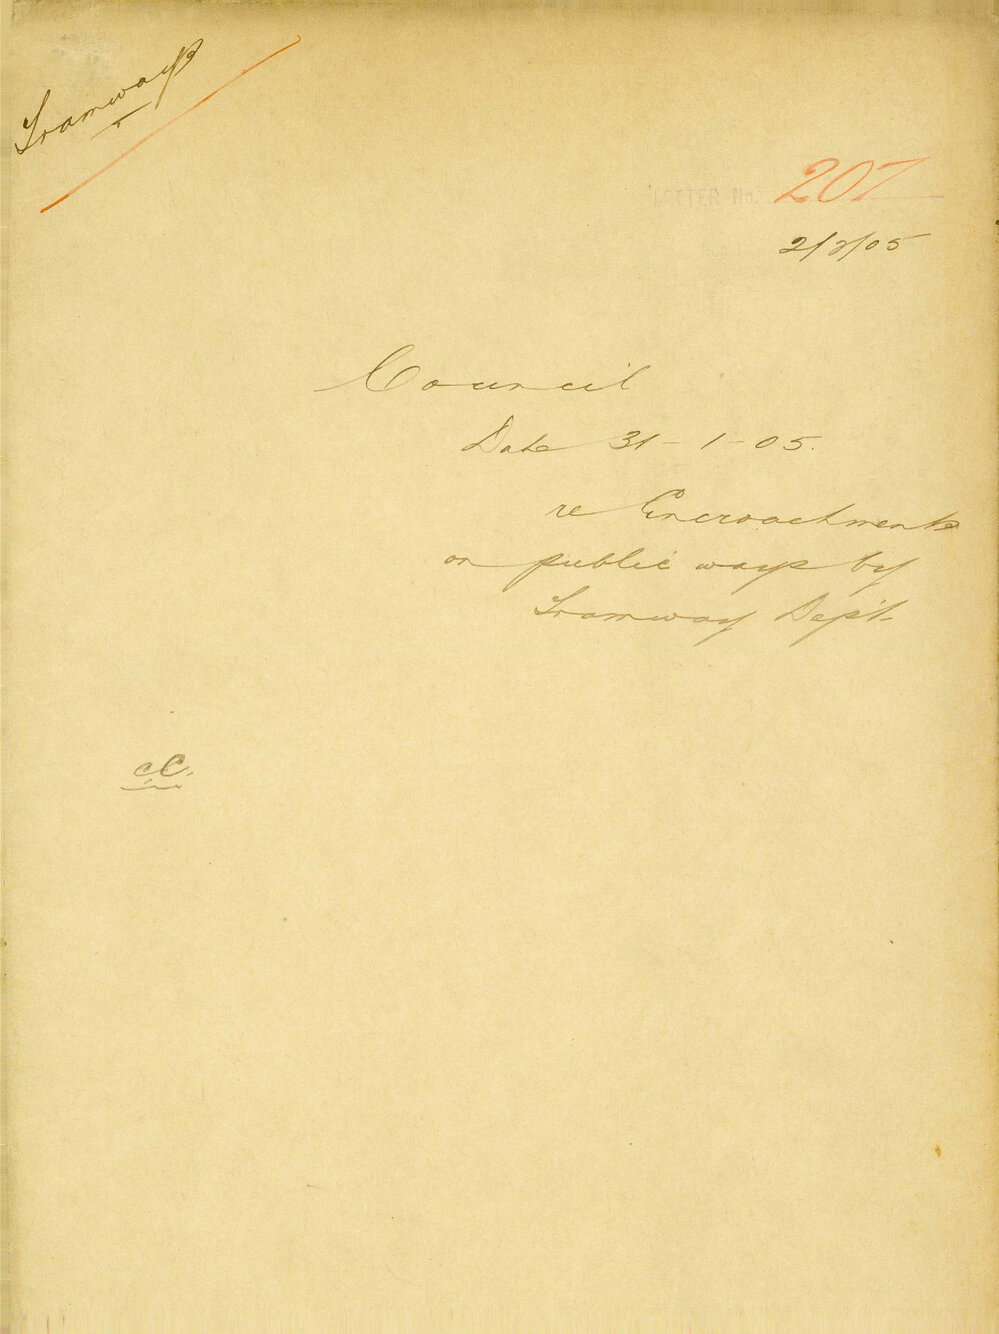 Tramways
LETTER No. 207
2/2/05
Council
Date 31-1-05.
re Encroachments
on public ways by
Tramway Dept.
CC.